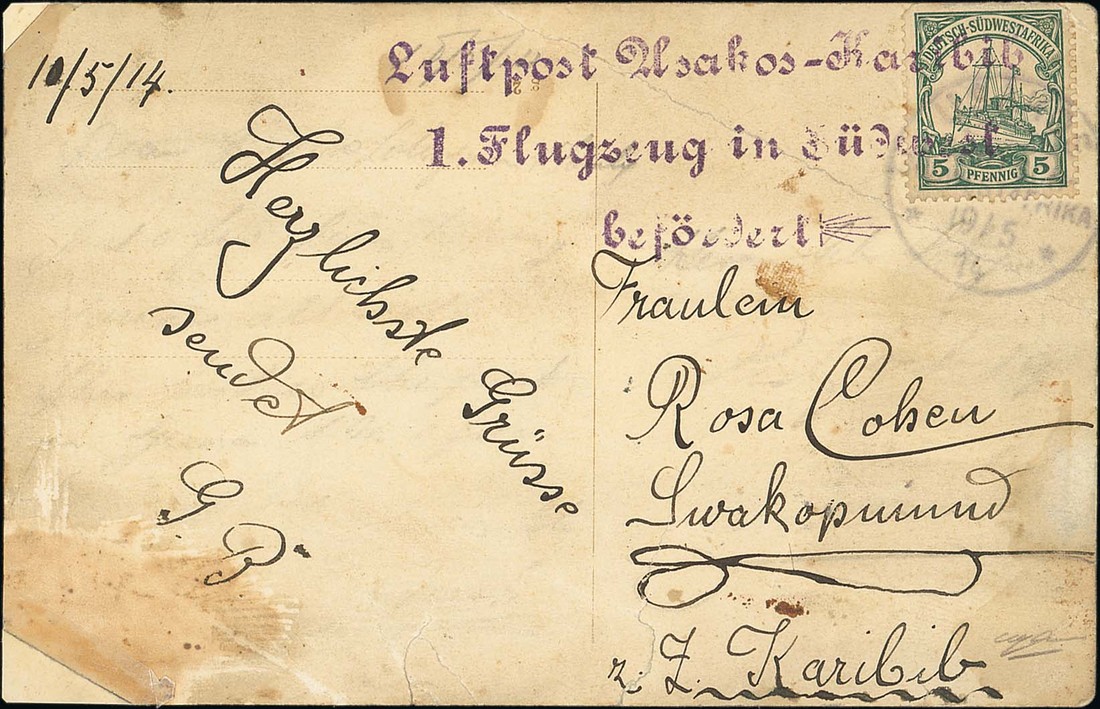 10/5/14.
Luftpost Usakos-Karibib
1. Flugzeug in Südwest
befördert
DEUTSCH-SÜDWESTAFRIKA
5 PFENNIG 5
Herzlichste Grüsse
sendet
G B
Fraulein
Rosa Cohen
Swakopmund
z. Z. Karibib